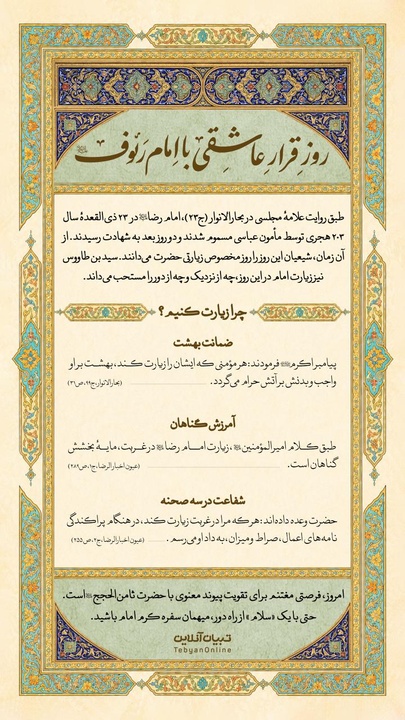 روز قرار عاشقی با امام رئوف
طبق روایت علامهٔ مجلسی در بحارالانوار (ج۲۳)، امام رضا در ۲۳ ذی‌القعدهٔ سال
۲۰۳ هجری توسط مأمون عباسی مسموم شدند و دو روز بعد به شهادت رسیدند. از
آن زمان، شیعیان این روز را روز مخصوص زیارتی حضرت می‌دانند. سید بن طاووس
نیز زیارت امام در این روز، چه از نزدیک و چه از دور را مستحب می‌داند.
چرا زیارت کنیم؟
ضمانت بهشت
پیامبر اکرم فرمودند: هر مؤمنی که ایشان را زیارت کند، بهشت بر او
واجب و بدنش بر آتش حرام می‌گردد. (بحارالانوار، ج۹۹، ص۳۱)
آمرزش گناهان
طبق کلام امیرالمؤمنین، زیارت امام رضا در غربت، مایهٔ بخشش
گناهان است. (عیون اخبارالرضا، ج۱، ص۲۸۹)
شفاعت در سه صحنه
حضرت وعده داده‌اند: هر که مرا در غربت زیارت کند، در هنگام پراکندگی
نامه‌های اعمال، صراط و میزان، به داد او می‌رسم. (عیون اخبارالرضا، ج۲، ص۲۵۵)
امروز، فرصتی مغتنم برای تقویت پیوند معنوی با حضرت ثامن‌الحجج است.
حتی با یک «سلام» از راه دور، میهمان سفره کرم امام باشید.
تبیان آنلاین
TebyanOnline